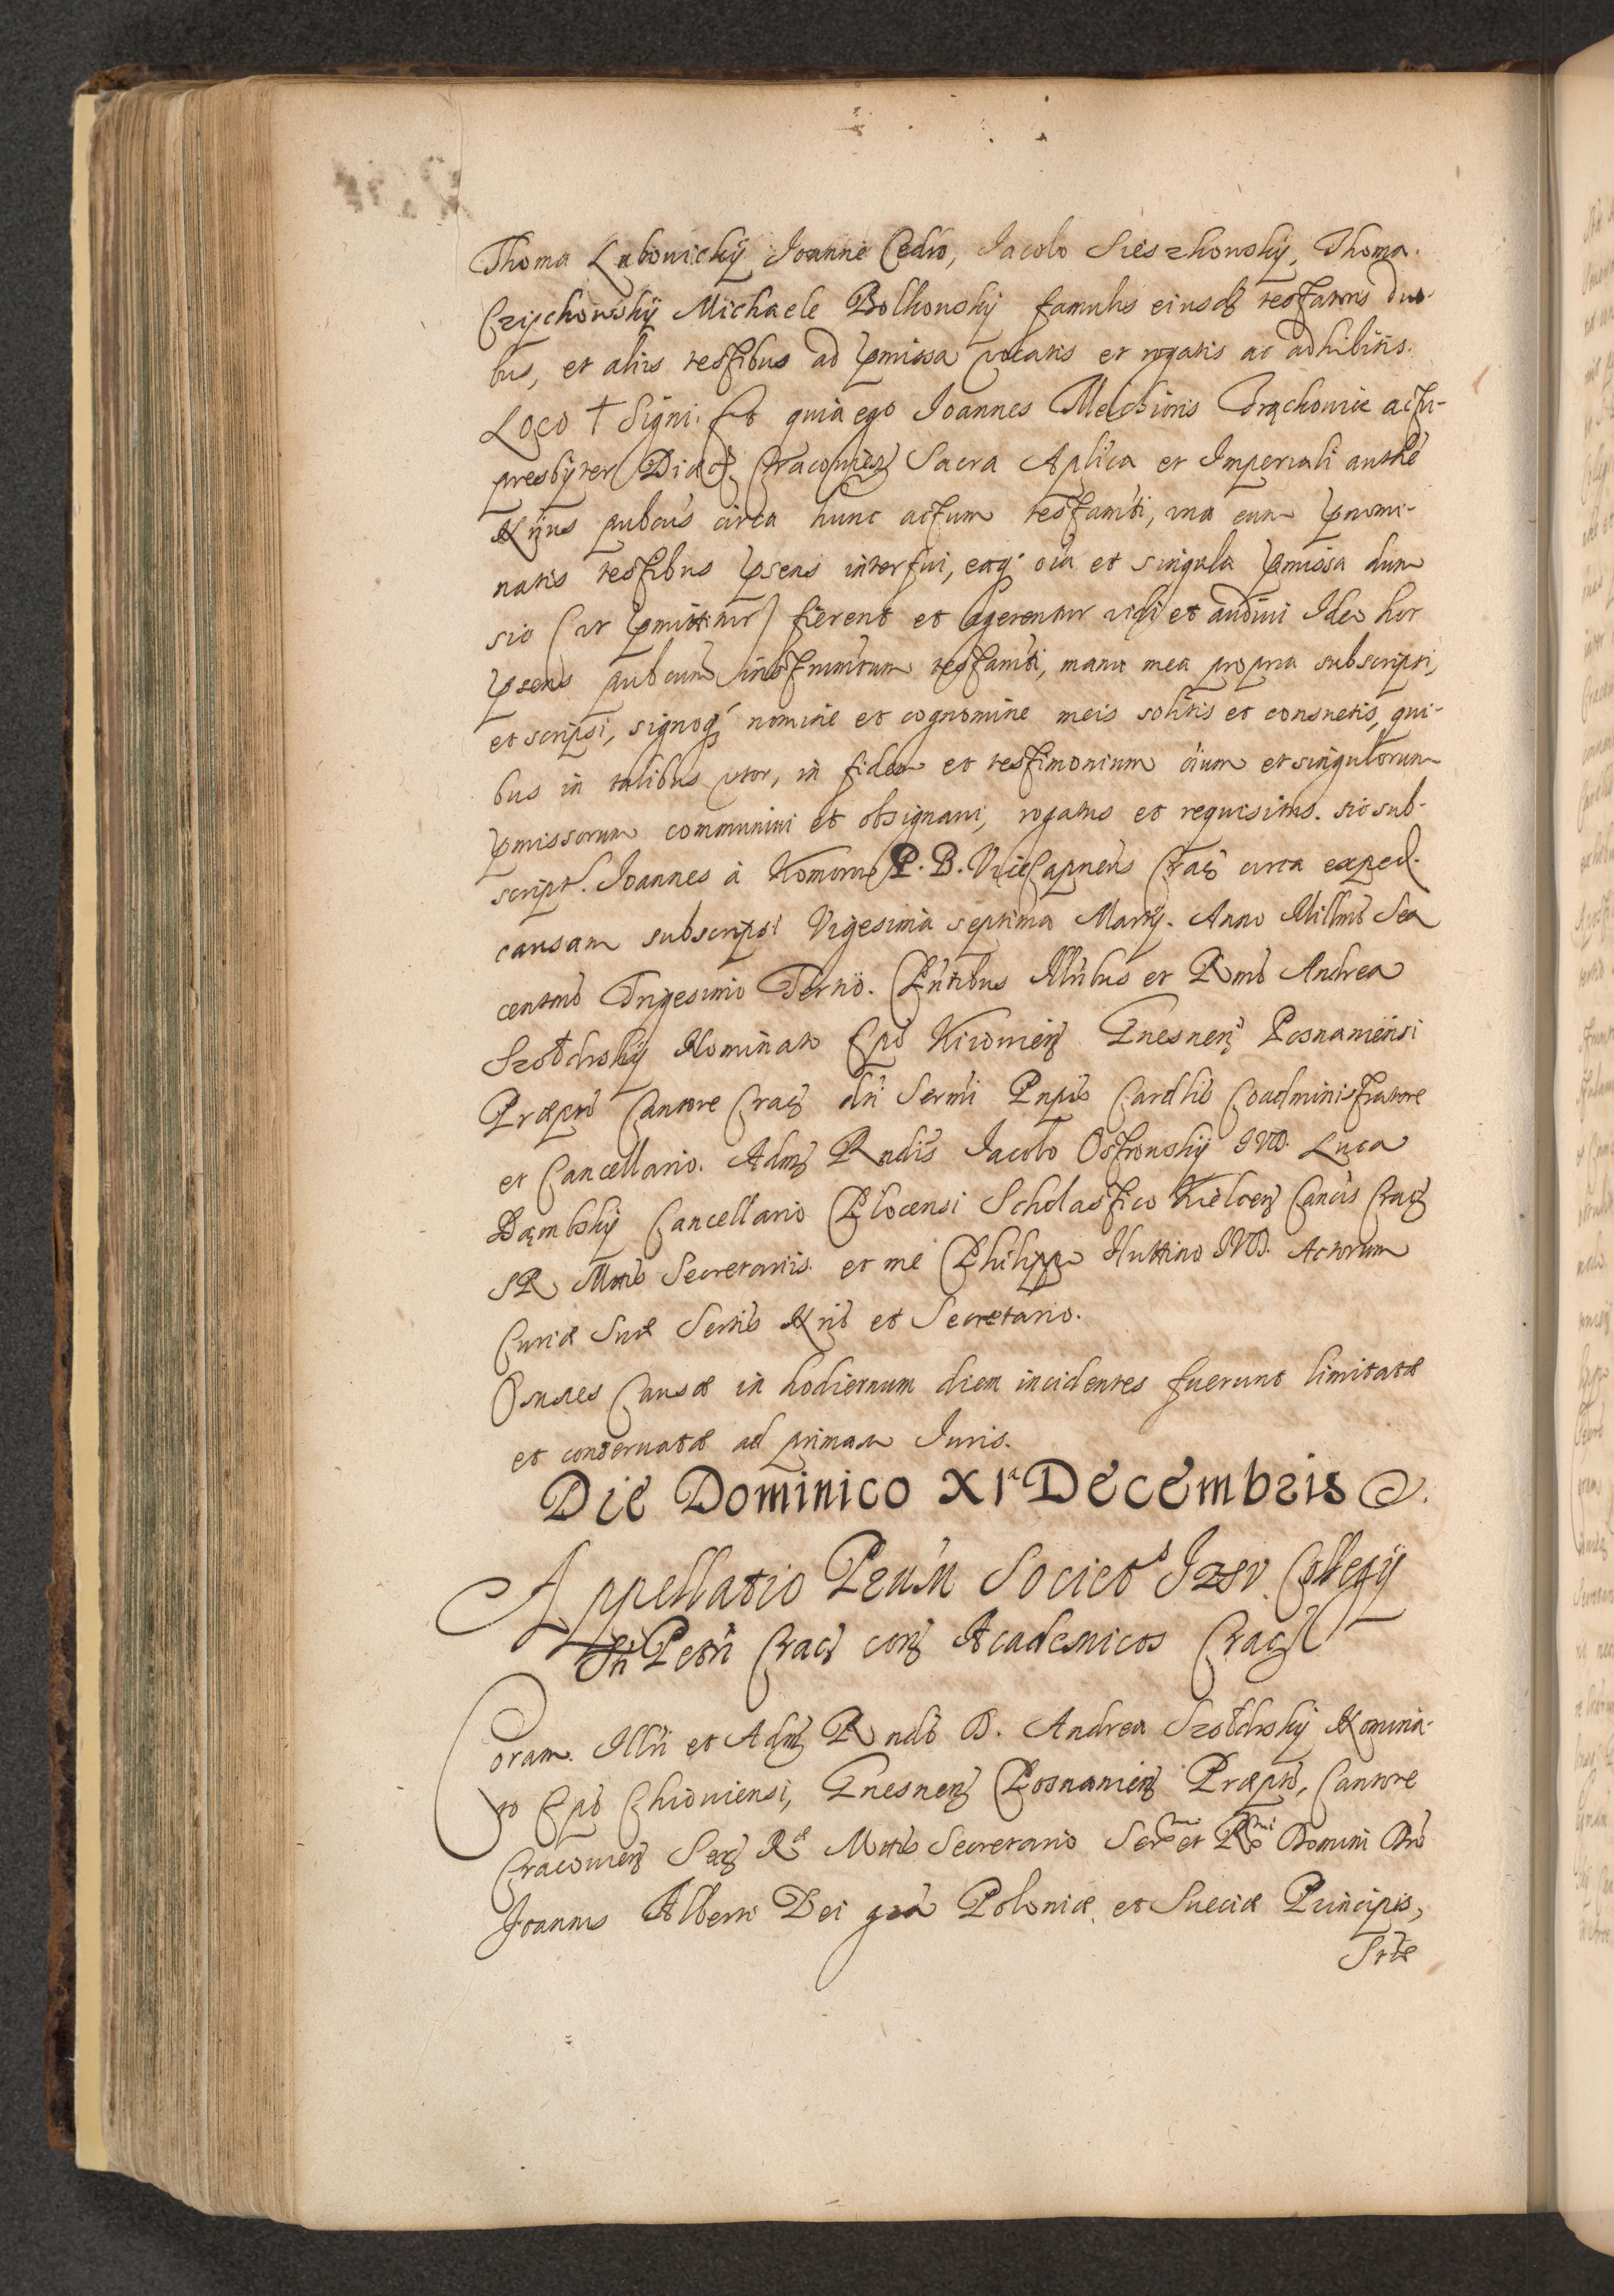 Thoma Lubowicky Joanne Cedro, Jacobo Sieszkowsky, Thoma
Czijchowskij Michaele Bolkonskij famulis eiusdē testatoris duo-
bus, et aliis testibus ad pmissa vocatis et rogatis ac adhibitis.
Loco † Signi. Et quia ego Joannes Melchioris Trąckowic actu-
presbyter Diæc Cracovień Sacra Aplica et Imperiali authē
Nrius publcus circa hunc actum testamti, una cum pnomi-
natis testibus psens interfui, eaq oīa et singula pmissa dum
sic (ut pmittitur) fierent et agerentur vidi et audivi Ideo hoc
psens pubcum instrumtum testamti, manu mea propria subscripsi,
et scripsi, signoq nomine et cognomine meis solitis et consuetis, qui-
bus in talibus utor, in fidem et testimonium oium et singulorum
pmissorum communivi et obsignavi, rogatus et requisitus. sic sub-
script. Joannes à Komorow P. B. ViceCapneus Crac circa exped.
causam subscripsi Vigesima septima Martij. Anno Millmo Sex
centmo Trigesimo Tertio. Pntibus Illribus et Rmo Andrea
Szołdrskij Nominato Epo Kiiovień Gnesneń Posnaniensi
Præpto Cantore Crac dni Sermi Pnpis Cardlis Coadministratore
et Cancellario. Adm Rndis Jacobo Ostrowskij IVD. Luca
Dąmbskij Cancellario Plocensi Scholastico Kielceń Cancis Crac
SR Mttis Secretariis et me Philippo Huttino IVD. Actorum
Curiæ Suæ Sertis Nrio et Secretario.
Omnes Causæ in hodiernum diem incidentes fuerunt limitatæ
et conservatæ ad primam Iuris.
Die Dominico XIa Decembris
Appellatio Prūm Societs Jesv Collegij
Sti Petri Crac con Academicos Crac
Coram Illri et Adm Rndo D. Andrea Szołdrskij Nomina-
to Epo Chioviensi, Gnesneń Posnanień Præpto, Cantore
Cracovień Sac Ræ Mttis Secretario Sermi et Rmi Domini Dni
Joannis Alberti Dei gra Poloniæ et Sueciæ Principis,
Srtæ